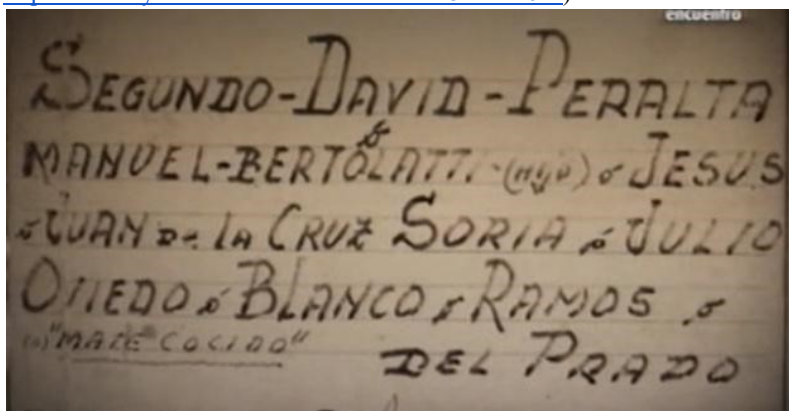 encuentro
SEGUNDO-DAVID-PERALTA
ó
MANUEL-BERTOLATTI-(hijo) o JESUS
ó JUAN DE LA CRUZ SORIA ó JULIO
OMEDO ó BLANCO ó RAMOS ó
(a) "MATE COCIDO" DEL PRADO